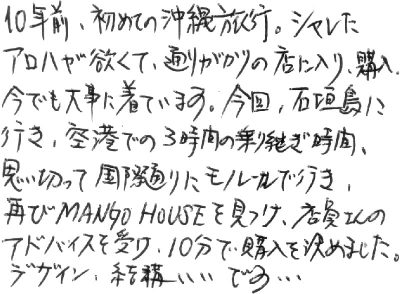 10年前、初めての沖縄旅行。シャレた
アロハが欲くて、通りがかりの店に入り、購入。
今でも大事に着ています。今回、石垣島に
行き、空港での3時間の乗り継ぎ時間、
思い切って国際通りにモノレールで行き、
再びMANGO HOUSEを見つけ、店員さんの
アドバイスを受け、10分で購入を決めました。
デザイン、結構いいです…